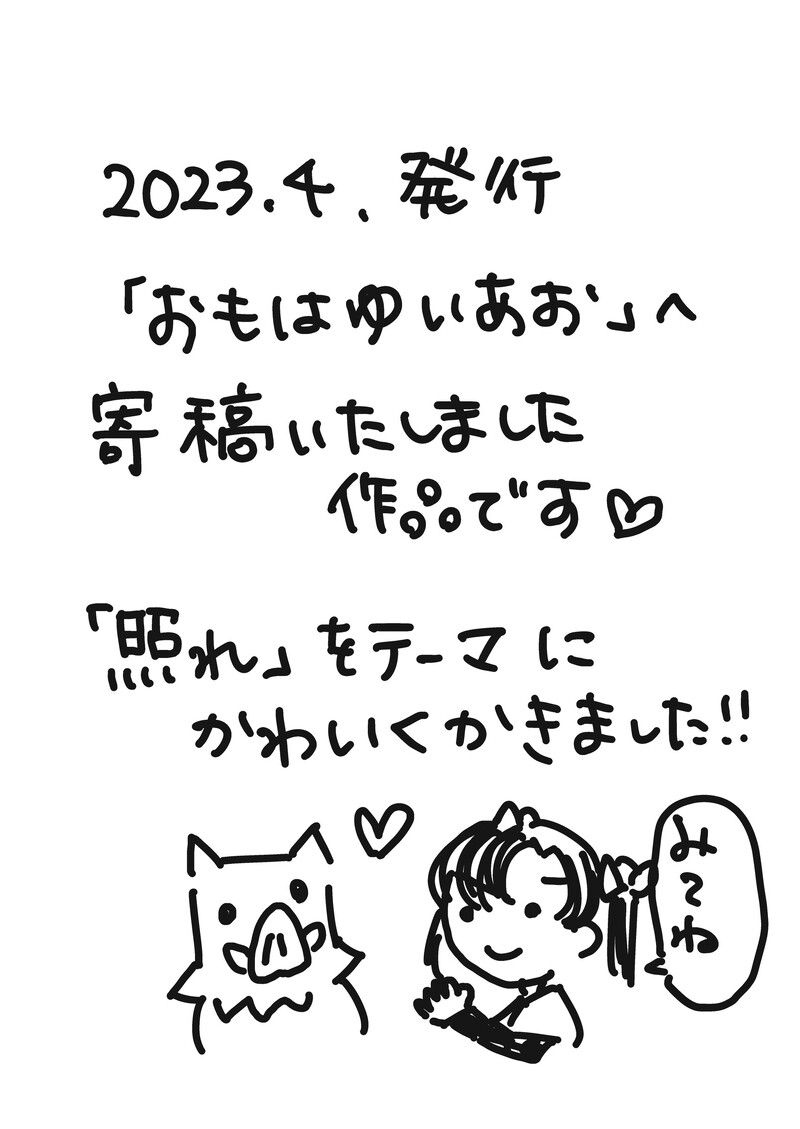 2023.4.発行
「おもはゆいあお」へ
寄稿いたしました
作品です♡
「照れ」をテーマに
かわいくかきました!!
みてね